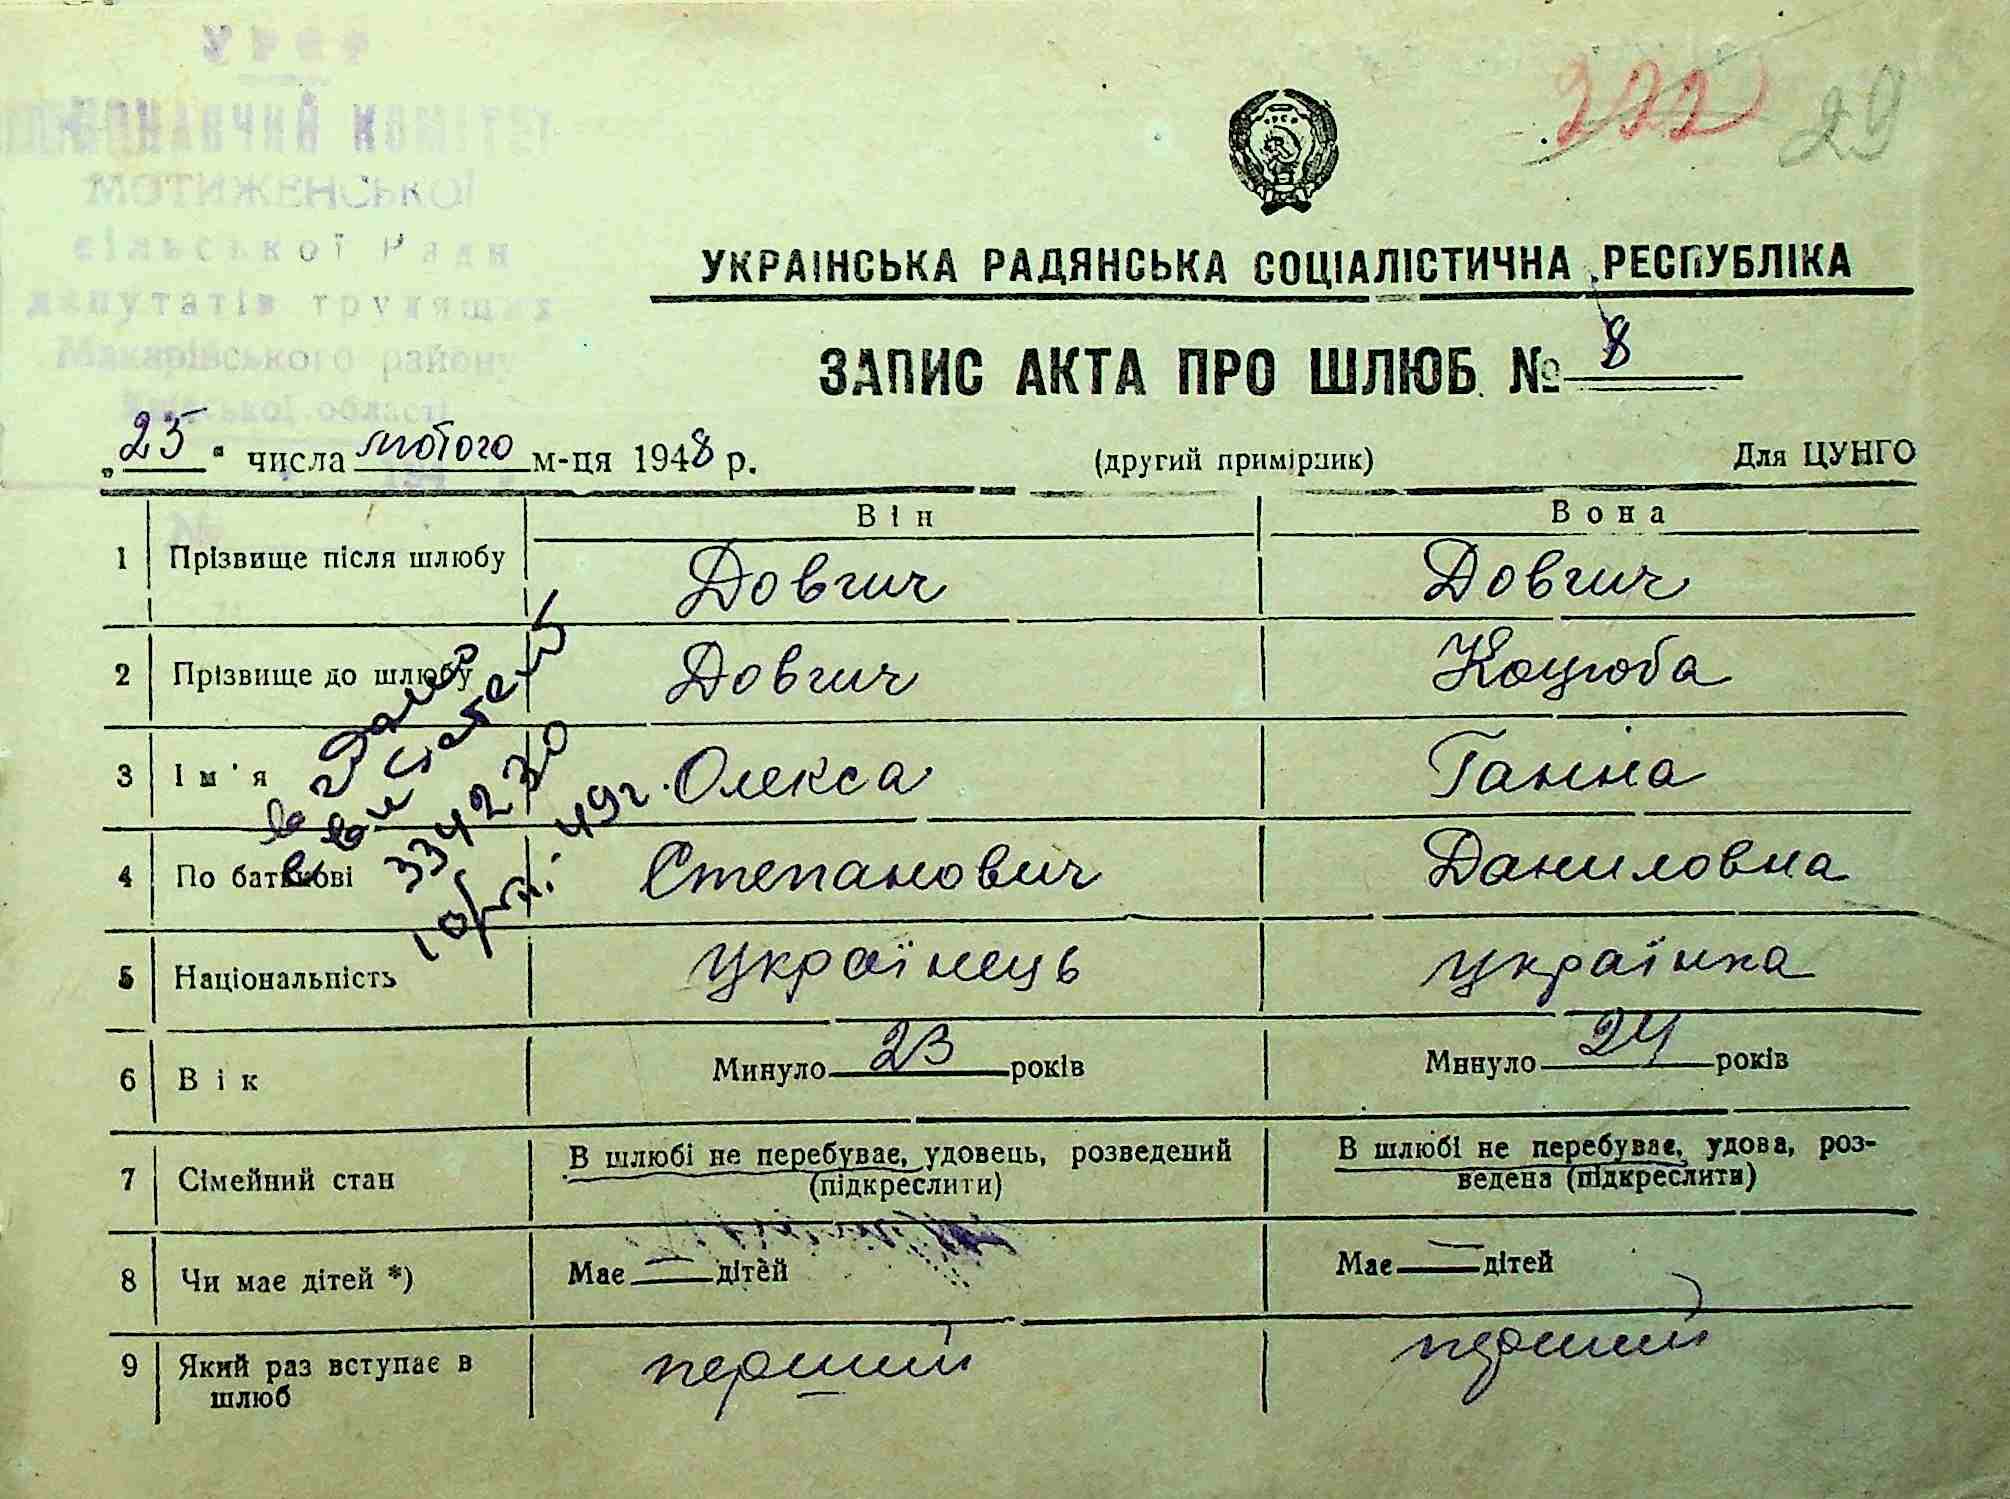 УРСР
ВИКОНАВЧИЙ КОМІТЕТ
МОТИЖЕНСЬКОЇ
сільської Ради
депутатів трудящих
Макарівського району
Київської області
222 29
УКРАІНСЬКА РАДЯНСЬКА СОЦІАЛІСТИЧНА РЕСПУБЛІКА
ЗАПИС АКТА ПРО ШЛЮБ № 8
„25“ числа лютого м-ця 1948 р. (другий примірник) Для ЦУНГО
Він Вона
1 Прізвище після шлюбу Довгич Довгич
2 Прізвище до шлюбу Довгич Коцюба
3 Ім'я Олекса Ганна
4 По батькові Степанович Даниловна
5 Національність українець українка
6 Вік Минуло 23 років Минуло 24 років
7 Сімейний стан В шлюбі не перебуває, удовець, розведений (підкреслити) В шлюбі не перебуває, удова, роз-
ведена (підкреслити)
8 Чи має дітей *) Має — дітей Має — дітей
9 Який раз вступає в шлюб перший перший
334230
49г.